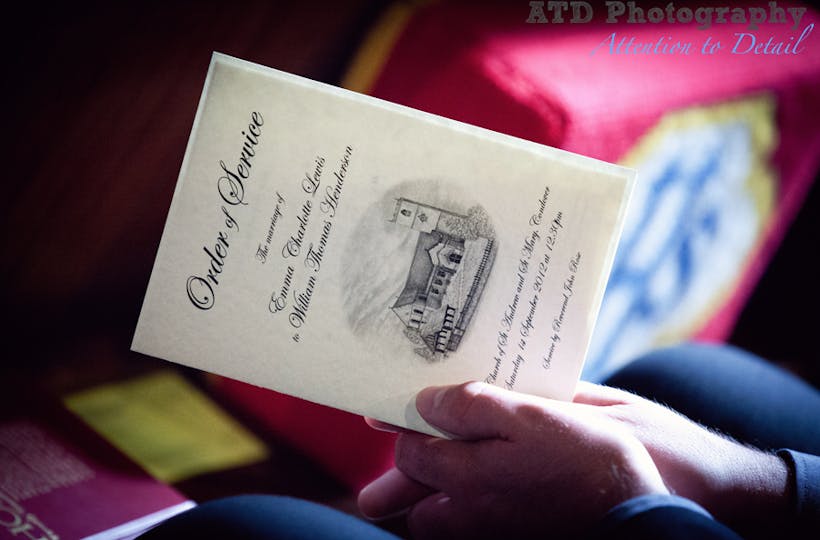 ATD Photography
Attention to Detail
Order of Service
The marriage of
Emma Charlotte Lewis
to William Thomas Henderson
Church of St Andrew and St Mary, Condover
Saturday 1st September 2012 at 12:30pm
Service by Reverend John Rose